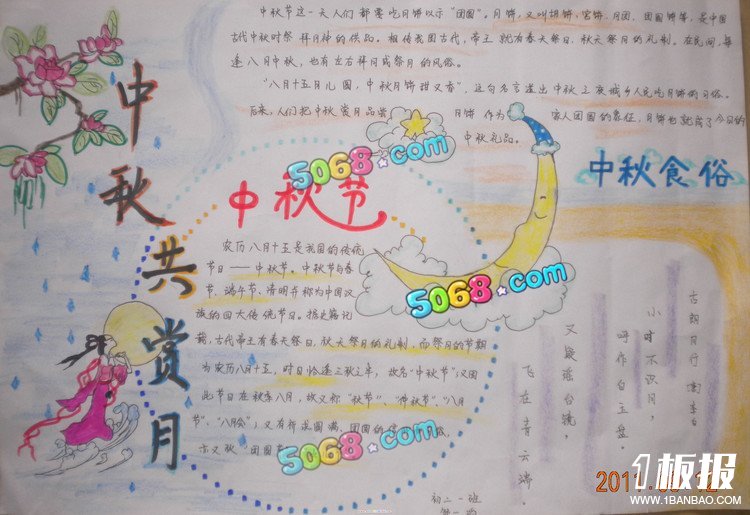 中秋节这一天人们都要吃月饼以示“团圆”。月饼，又叫胡饼、宫饼、月团、团圆饼等，是中国
古代中秋时祭拜月神的供品。相传我国古代，帝王就有春天祭日、秋天祭月的礼制。在民间，每
逢八月中秋，也有左右拜月或祭月的风俗。
“八月十五月儿圆，中秋月饼甜又香”，这句名言道出中秋之夜城乡人民吃月饼的习俗。
后来，人们把中秋赏月品尝 月饼作为 家人团圆的象征，月饼也就成了今日的
中秋礼品。
中秋共赏月
中秋食俗
中秋节
农历八月十五是我国的传统
节日——中秋节。中秋节与春
节、端午节、清明并称为中国汉
族的四大传统节日。据史籍记
载，古代帝王有春天祭日、秋天祭月的礼制，而祭月的节期
为农历八月十五，时日恰逢三秋之半，故名“中秋节”；又因
此节日在秋季八月，故又称“秋节”、“仲秋节”、“八月
节”、“八月会”；又有祈求团圆
古朗月行 李白
小时不识月，
呼作白玉盘。
又疑瑶台镜，
飞在青云端。
初二一班
5068.com
5068.com
5068.com
5068.com
1板报
WWW.1BANBAO.COM